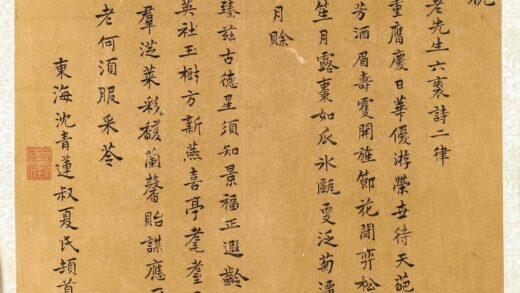 老先生六袠詩二律
重膺慶日華優游榮世待天葩
芳酒眉壽霞開旌節花閒弈松
笙月露棗如瓜冰甌更泛菊潭
月賒
臻茲古德星須知景福正遐齡
英社玉樹方新燕喜亭耄耋
羣萊彩馥蘭馨貽謀應
老何須服采苓
東海沈青蓮叔夏氏頓首